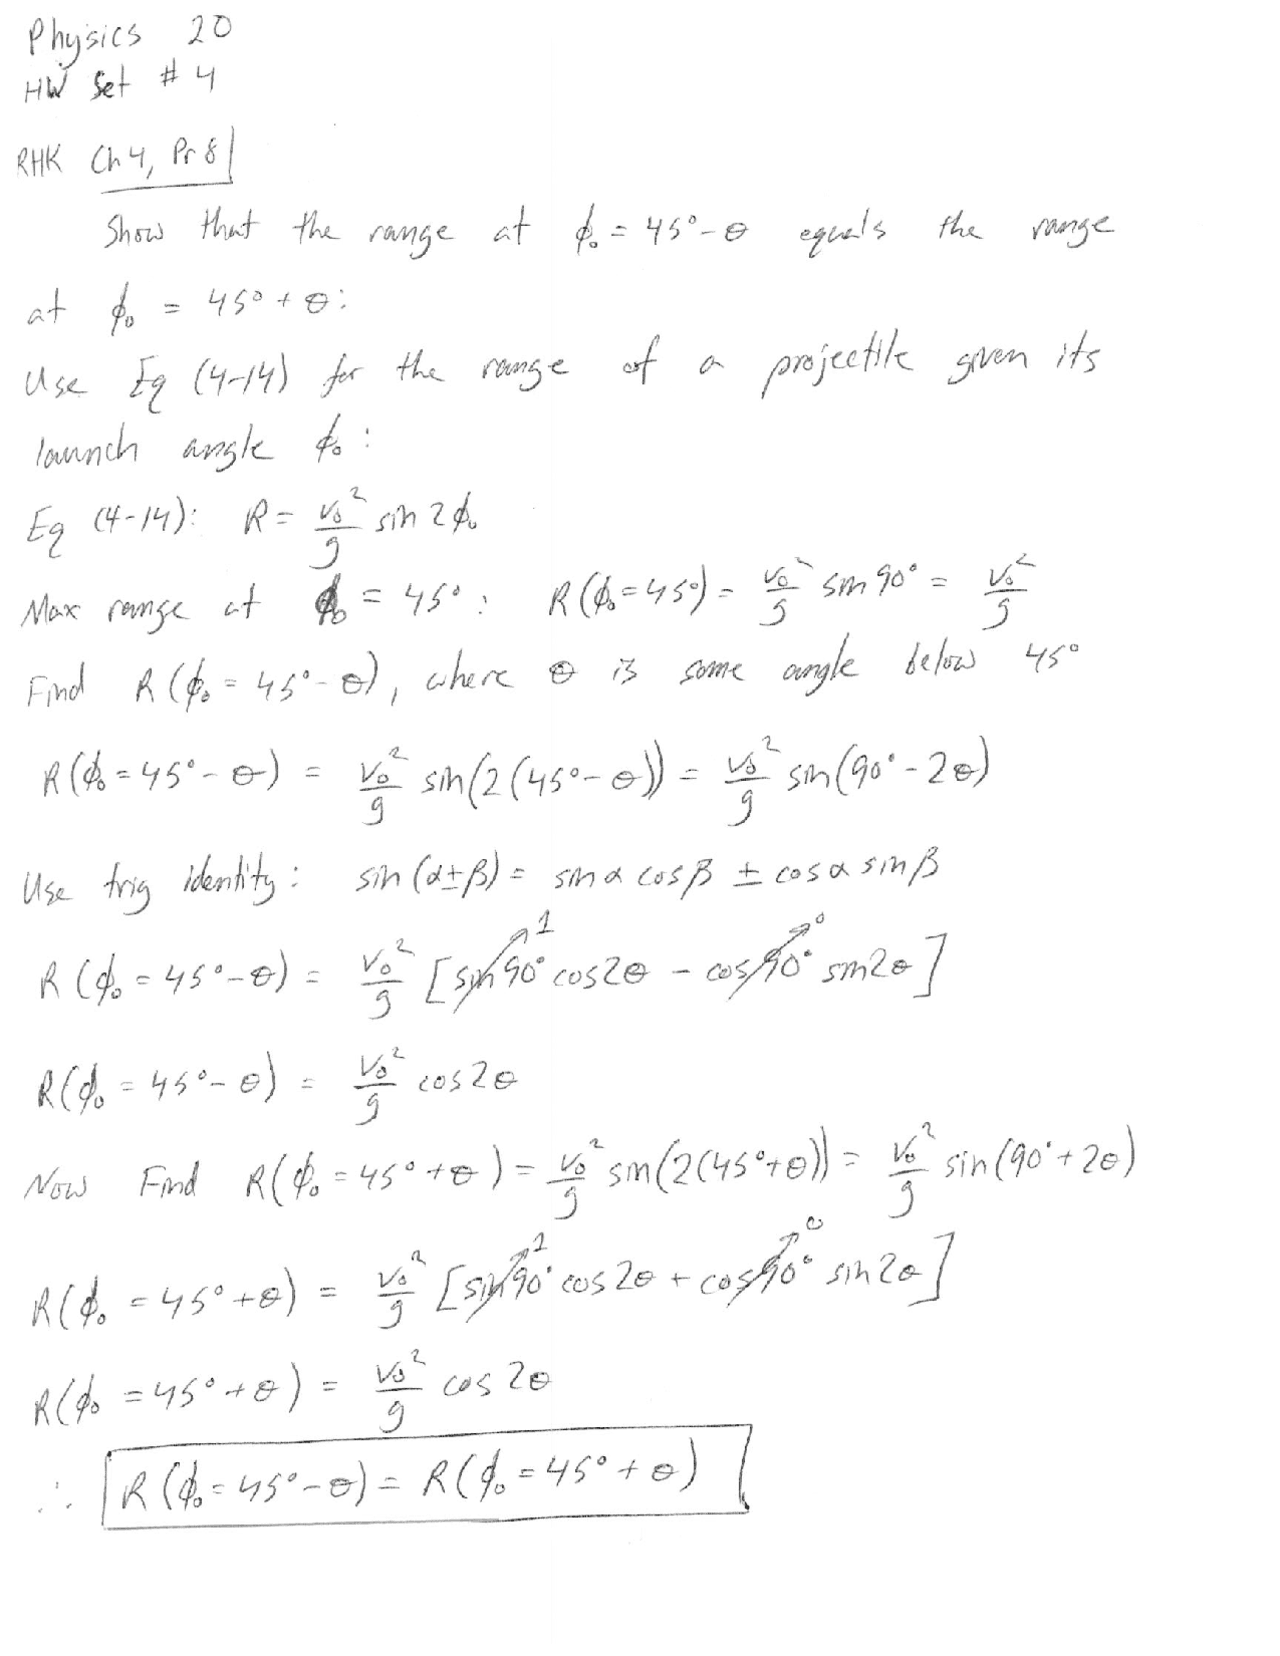 Physics 20
HW Set #4
RHK Ch 4, Pr 8
Show that the range at ϕ₀ = 45° - θ equals the range
at ϕ₀ = 45° + θ:
Use Eq (4-14) for the range of a projectile given its
launch angle ϕ₀:
Eq (4-14): R = v₀²/g sin 2ϕ₀
Max range at ϕ₀ = 45°: R(ϕ₀=45°) = v₀²/g sin 90° = v₀²/g
Find R(ϕ₀ = 45° - θ), where θ is some angle below 45°
R(ϕ₀ = 45° - θ) = v₀²/g sin(2(45° - θ)) = v₀²/g sin(90° - 2θ)
Use trig identity: sin(α±β) = sin α cos β ± cos α sin β
R(ϕ₀ = 45° - θ) = v₀²/g [sin 90° ↗1 cos 2θ - cos 90° ↗0 sin 2θ]
R(ϕ₀ = 45° - θ) = v₀²/g cos 2θ
Now Find R(ϕ₀ = 45° + θ) = v₀²/g sin(2(45° + θ)) = v₀²/g sin(90° + 2θ)
R(ϕ₀ = 45° + θ) = v₀²/g [sin 90° ↗1 cos 2θ + cos 90° ↗0 sin 2θ]
R(ϕ₀ = 45° + θ) = v₀²/g cos 2θ
∴ R(ϕ₀ = 45° - θ) = R(ϕ₀ = 45° + θ)